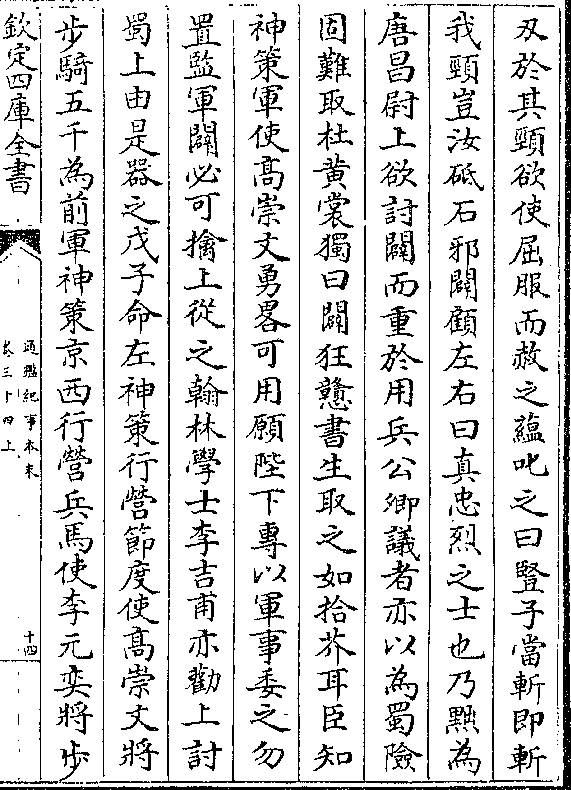 刄於其頸欲使屈服而赦之蘊叱之曰豎子當斬即斬
我頸豈汝砥石邪闢顧左右曰真忠烈之士也乃黜為
唐昌尉上欲討闢而重於用兵公卿議者亦以為蜀險
固難取杜黄裳獨曰闢狂戇書生取之如拾芥耳臣知
神策軍使髙崇文勇畧可用願陛下專以軍事委之勿
置監軍闢必可擒上從之翰林學士李吉甫亦勸上討
蜀上由是器之戊子命左神策行營節度使髙崇文將
步騎五千為前軍神策京西行營兵馬使李元奕將步
欽定四庫全書
通鑑紀事本末
卷三十四上
十四